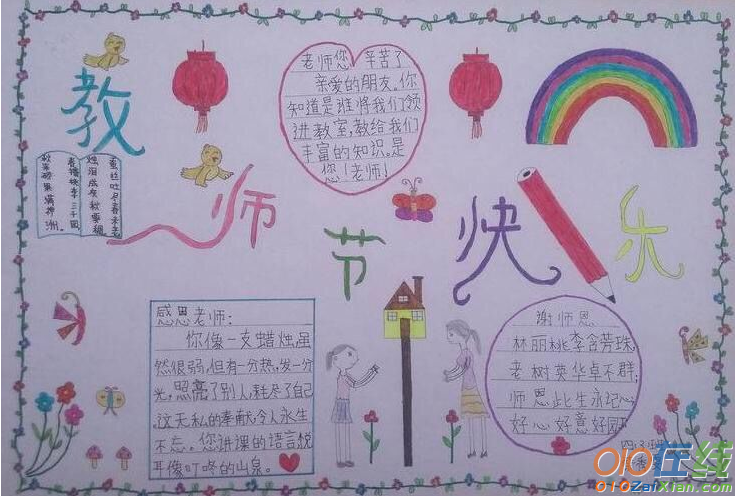 教师节快乐
老师您 辛苦了
亲爱的朋友。你
知道是谁将我们领
进教室,教给我们
丰富的知识。是
您!老师!
蚕丝吐尽春未老
烛泪成灰秋更稠
春播桃李三千圃
秋来硕果满神洲。
感恩老师:
你像一支蜡烛虽
然很弱,但有一分热,发一分
光。照亮了别人,耗尽了自己
这无私的奉献,令人永生
不忘。您讲课的语言悦
耳像叮咚的山泉。
谢师恩
林丽桃李含芳珠,
老树英华卓不群;
师恩此生永记心
好心好意好园
010在线
010ZaiXian.com